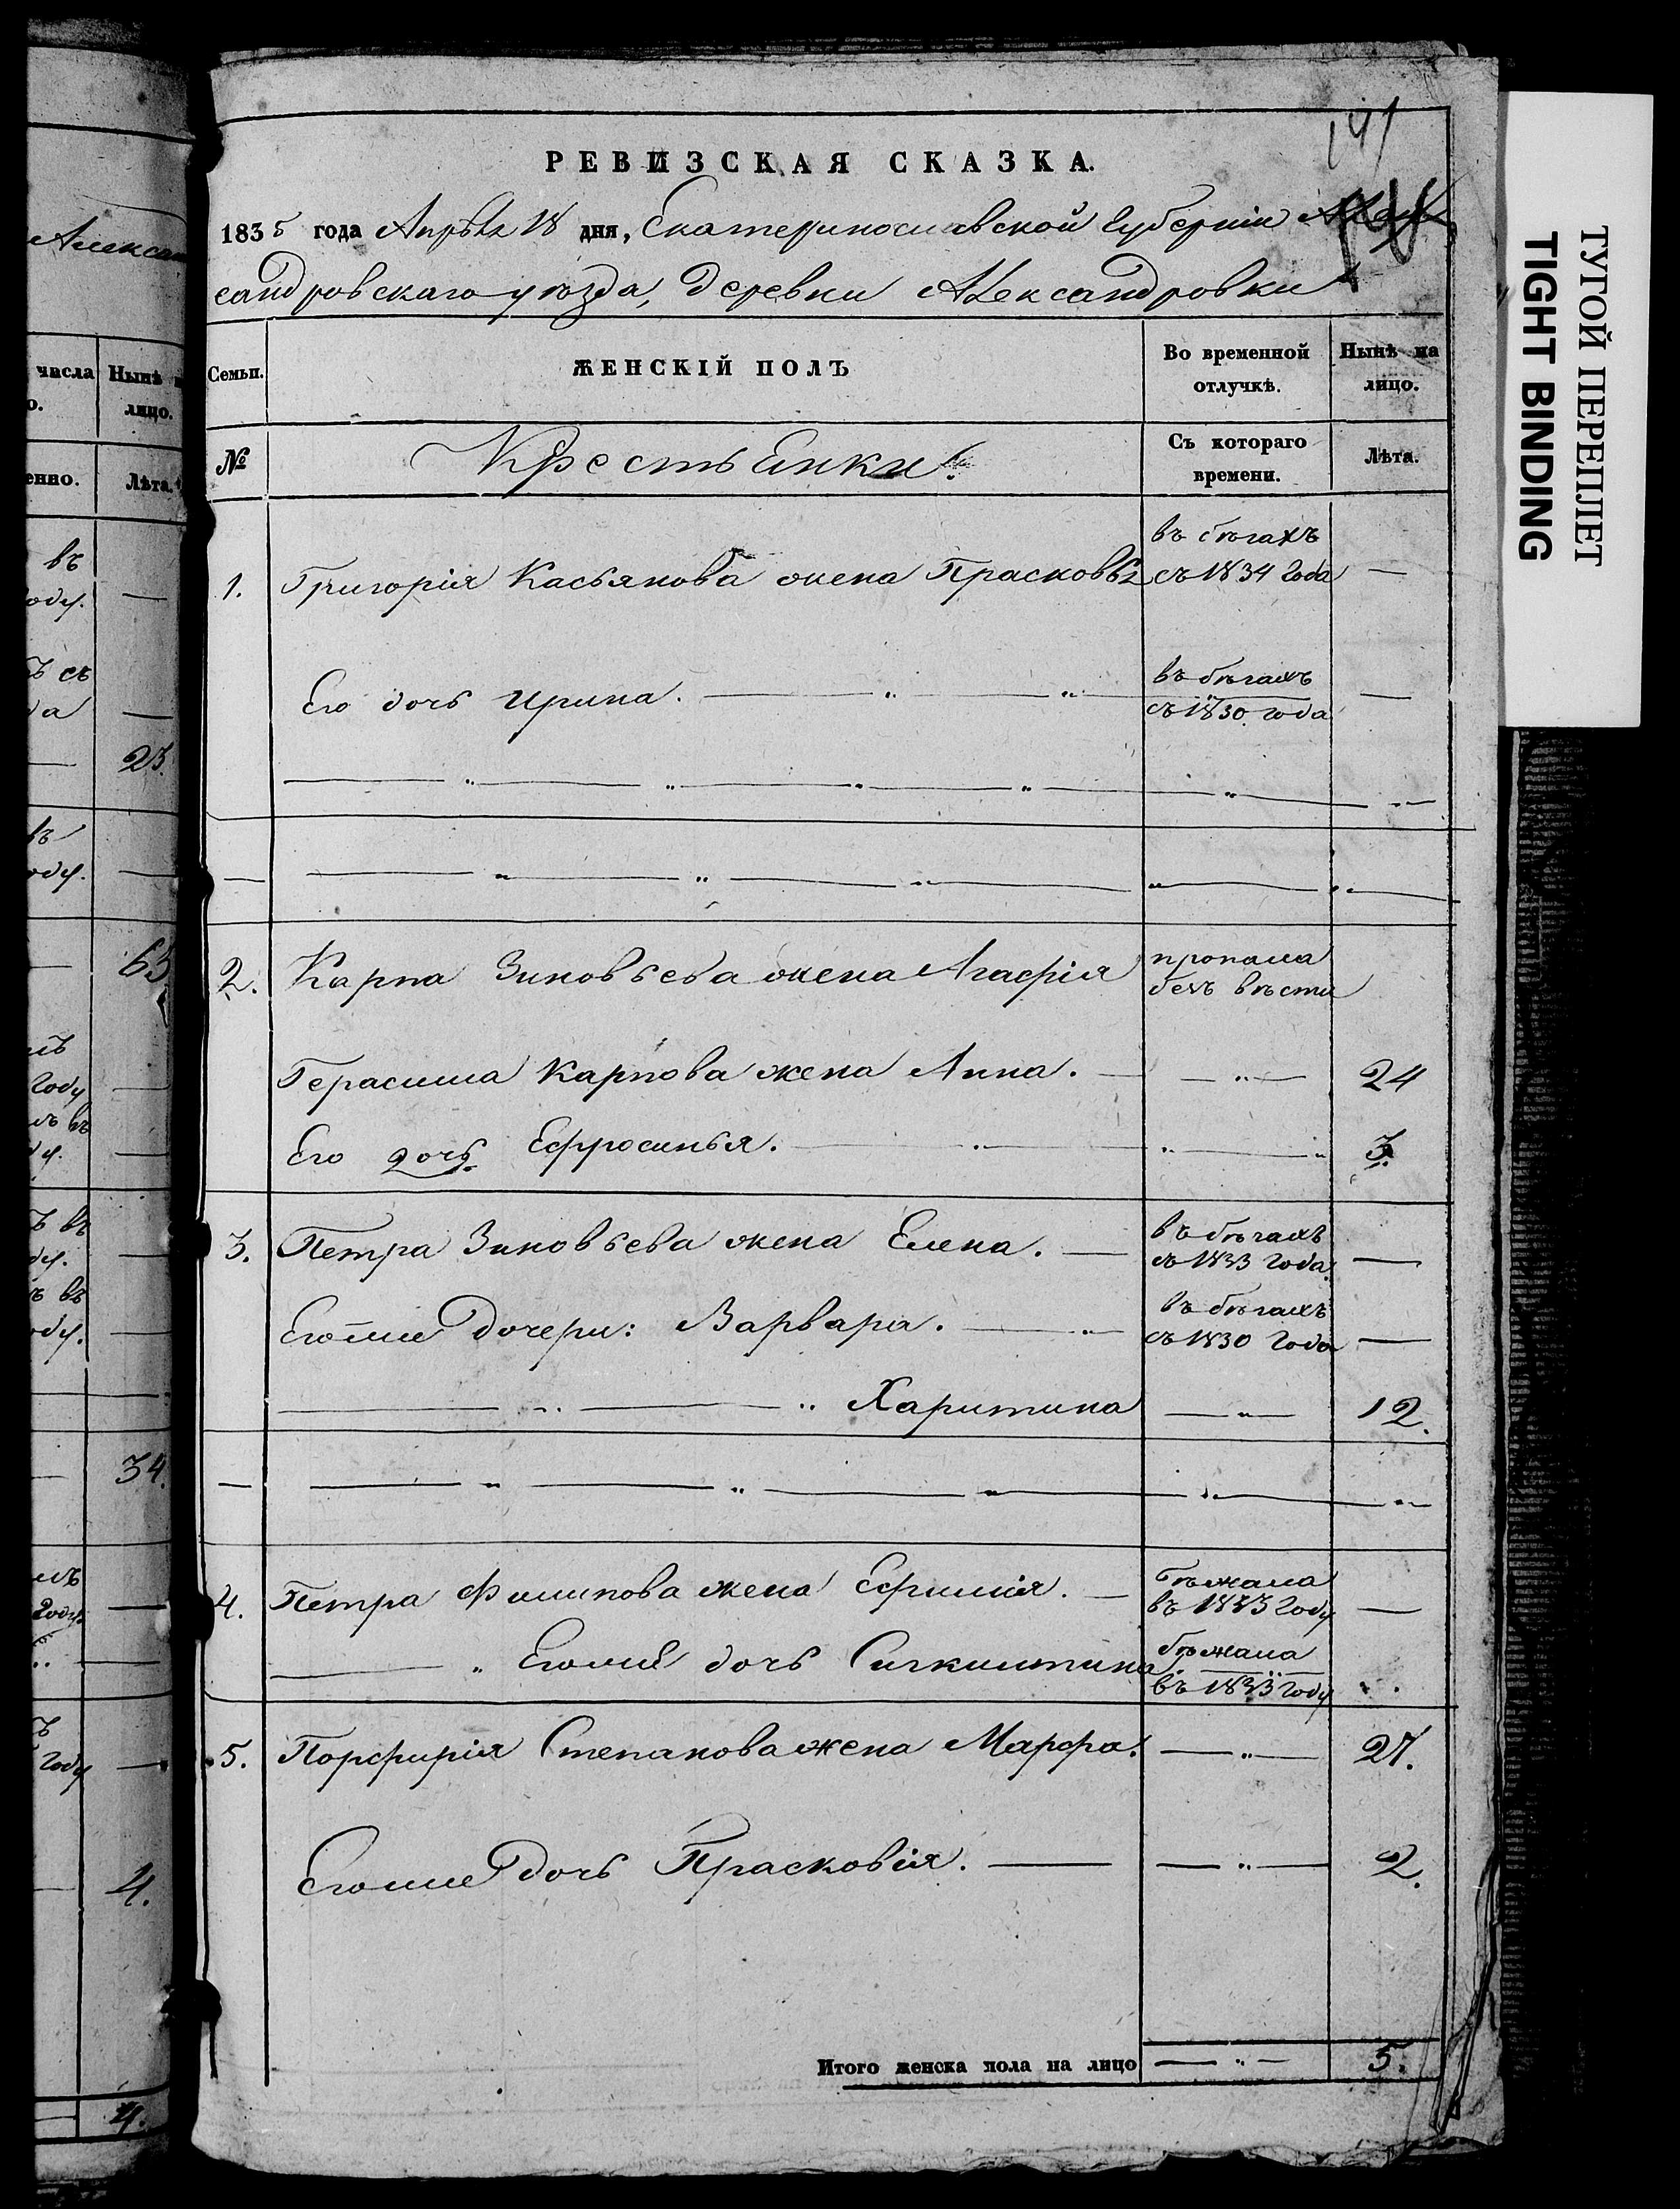 141
РЕВИЗСКАЯ СКАЗКА.
1835 года Апрѣля 18 дня, Екатеринославской Губерніи Алек
сандровскаго уѣзда, деревни Александровки
Семьи. ЖЕНСКІЙ ПОЛЪ Во временной отлучкѣ. Нынѣ на лицо.
№ Крестьянки. Съ котораго времени. Лѣта.
1. Григорія Касьянова жена Прасковья въ бѣгахъ съ 1834 года —
Его дочь Ирина. въ бѣгахъ съ 1830 года —
2. Карпа Зиновьева жена Агафія пропала безъ вѣсти
Герасима Карпова жена Анна. — 24
Его дочь Ефросинья. 3.
3. Петра Зиновьева жена Елена. — въ бѣгахъ съ 1833 года. —
Егоже дочери: Варвара. въ бѣгахъ съ 1830 года —
Харитина 12.
4. Петра Филипова жена Ефимія. — бѣжала въ 1833 году —
Егоже дочь бѣжала въ 1833 году
5. Порфирія Степанова жена Марфа. 27.
Егоже дочь Прасковія. — 2.
Итого женска пола на лицо 5.
ТУГОЙ ПЕРЕПЛЕТ
TIGHT BINDING
Алексан
числа Нынѣ
о. лицо.
енно. Лѣта.
въ
оду.
ъ съ
да
23.
въ
оду.
63
году
въ
34.
году
году
4.
4.